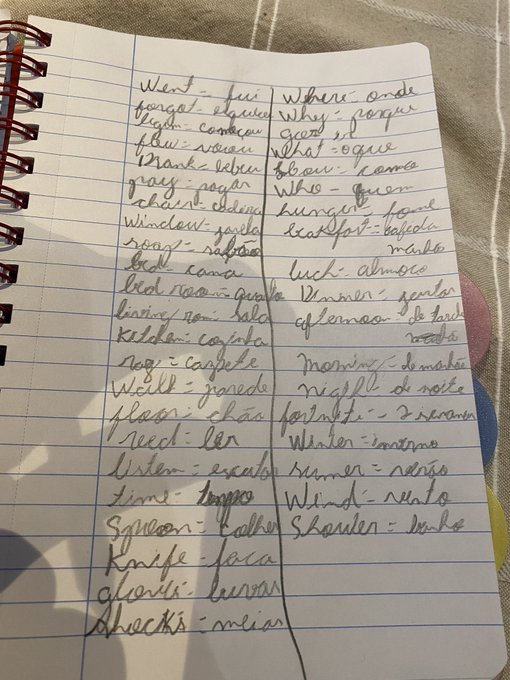 Went - fui
forgot - esquece
began - começou
flew - voou
Drank - bebeu
pay - pagar
chair - cadeira
Window - janela
soap - sabão
bed - cama
bed room - quarto
living room - sala
Kitchen - cozinha
rag = carpete
Wall = parede
floor = chão
reed = ler
listem = escutar
time = tempo
Spoon = colher
Knife - faca
gloves - luvas
Shocks = meias
Where - onde
Why - porque
What = oque
How = como
Who - quem
hunger - fome
manha
luch - almoco
Dinner - jantar
afternoon - de tarde
Morning - de manhão
night - de noite
Winter = inverno
sumer = verão
Wind = vento
Shouler = banho